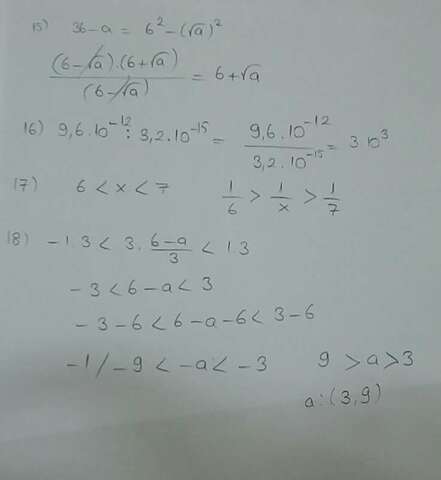 15) 36-a = 6² - (√a)²
(6-√a).(6+√a) / (6-√a) = 6+√a
16) 9,6.10⁻¹² : 3,2.10⁻¹⁵ = 9,6.10⁻¹² / 3,2.10⁻¹⁵ = 3 10³
17) 6 < x < 7 1/6 > 1/x > 1/7
18) -1.3 < 3. 6-a/3 < 1.3
-3 < 6-a < 3
-3-6 < 6-a-6 < 3-6
-1/ -9 < -a < -3 9 > a > 3
a:(3,9)